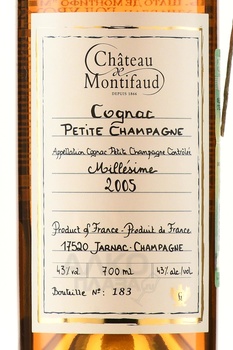 Château
de
Montifaud
DEPUIS 1866
Cognac
PETITE CHAMPAGNE
Appellation Cognac Petite Champagne Contrôlée
Millésime
2005
Product of France - Produit de France
17520 JARNAC-CHAMPAGNE
43% vol 700 ml 43% alc/vol
Bouteille N°: 183